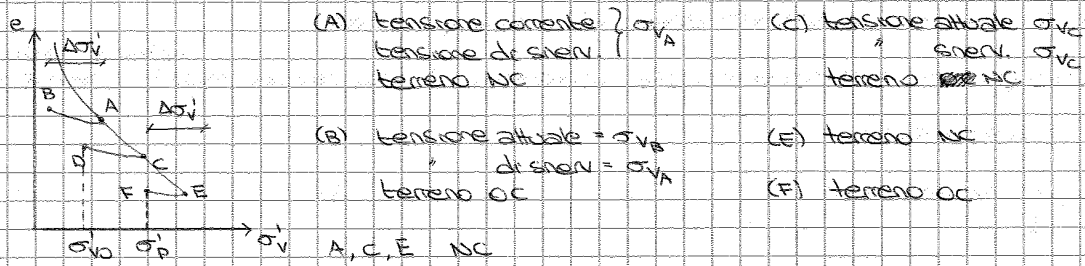 e
Δσ'v
B
A
Δσ'v
D
C
F
E
σ'v0 σ'p
σ'v
(A) tensione corrente } σvA
tensione di snerv.
terreno NC
(B) tensione attuale = σvB
" di snerv = σvA
terreno OC
A, C, E NC
(C) tensione attuale σvc
" snerv. σvc
terreno NC
(E) terreno NC
(F) terreno OC